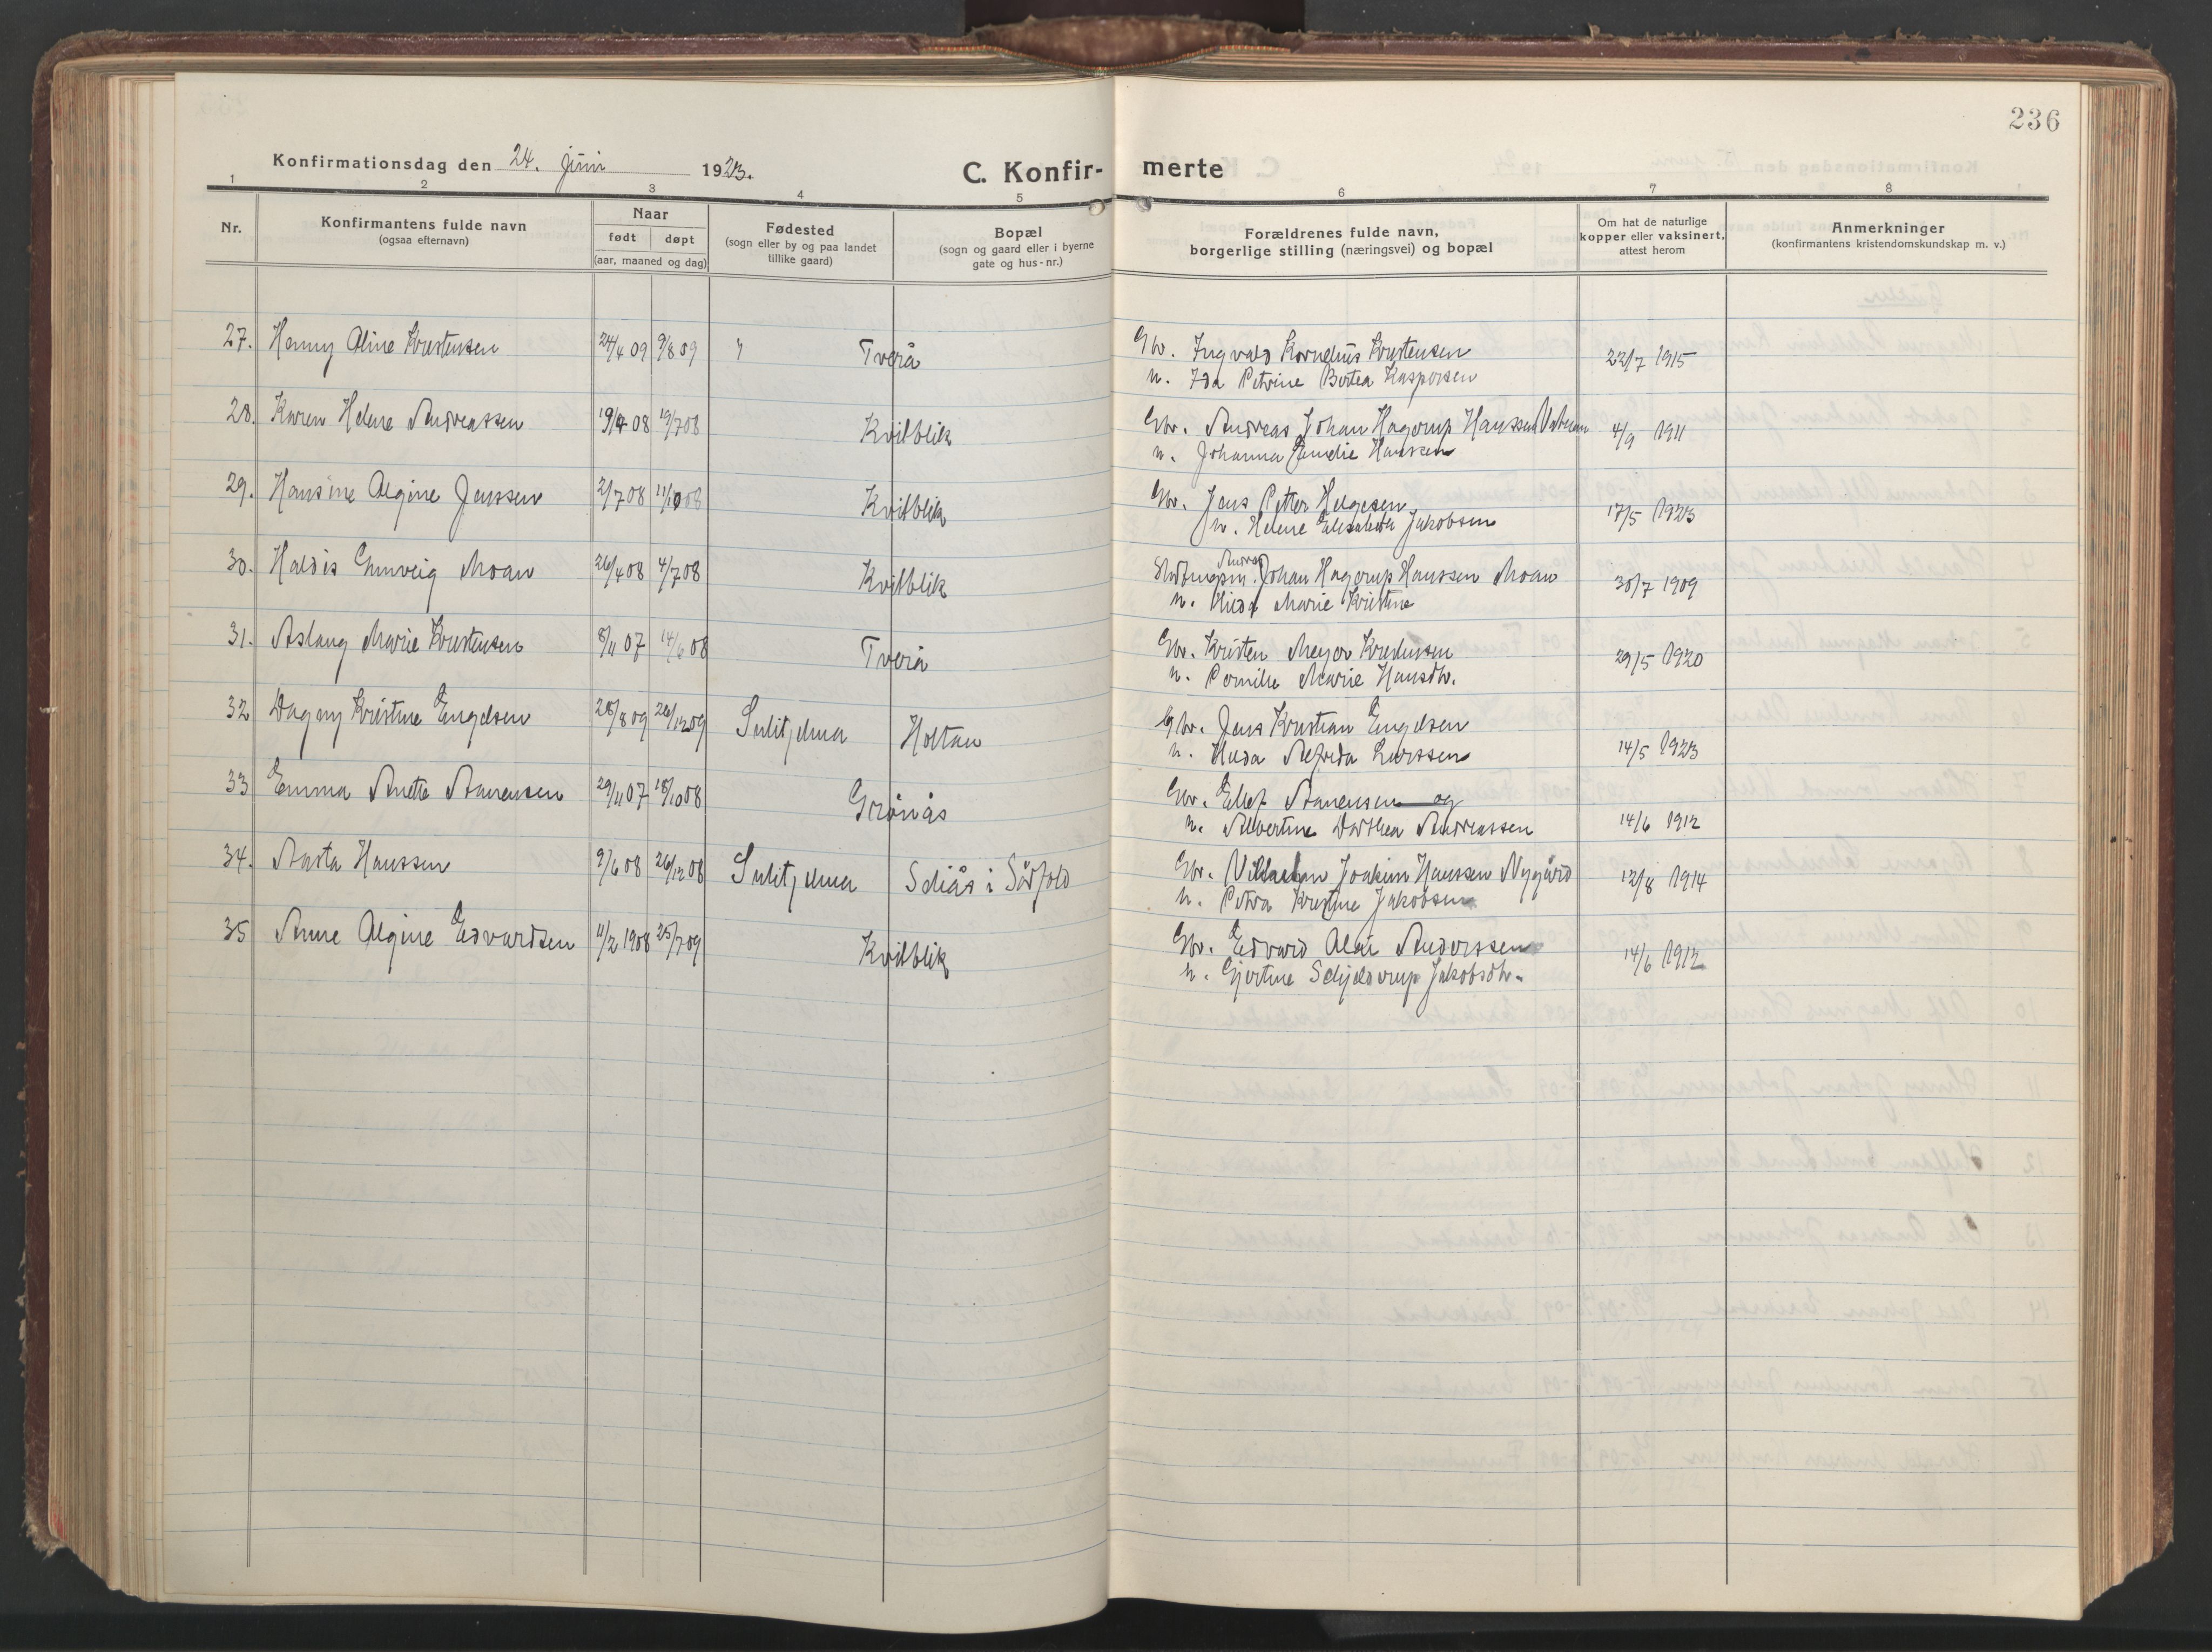 236
Konfirmationsdag den 24. juni 1923. C. Konfir- merte
1 2 3 4 5 6 7 8
Nr.
Konfirmantens fulde navn
(ogsaa efternavn)
Naar
født døpt
(aar, maaned og dag)
Fødested
(sogn eller by og paa landet
tillike gaard)
Bopæl
(sogn og gaard eller i byerne
gate og hus-nr.)
Forældrenes fulde navn,
borgerlige stilling (næringsvei) og bopæl
Om hat de naturlige
kopper eller vaksinert,
attest herom
Anmerkninger
(konfirmantens kristendomskundskap m. v.)
27. Henny Aline Kristensen 24/4 09 9/8 09 " Tverå Gbr. Ingvald Kornelius Kristensen 22/7 1915
n. Ida Petrine Bertea Kaspersen
28. Karen Helene Andreassen 19/4 08 19/7 08 Kvitblik Gbr. Andreas Johan Hagerup Hanssen 4/9 1911
n. Johanna Hanssen
29. Hansine Algine Jenssen 2/7 08 11/10 08 Kvitblik Gbr. Jens Petter Helgesen 17/5 1923
n. Helene Elisabeth Jakobsen
30. Haldis Gunveig Moan 26/4 08 4/7 08 Kvitblik Johan Hagerup Hanssen Moan 30/7 1909
n. Hilda Marie Kristine
31. Aslaug Marie Kristensen 8/11 07 14/6 08 Tverå Gbr. Kristen Meyer Kristensen 29/5 1920
n. Pernille Marie Hansdtr.
32 Dagny Kristine Engelsen 28/8 09 26/12 09 Sulitjelma Holtan Gbr. Jens Kristian Engelsen
n. Hilda Alfrida Larssen 14/5 1923
33 Emma Anette Aanensen 29/11 07 18/10 08 Grønås Gbr. Ellef Aanensen og
n. Albertine Dorthea Andreassen 14/6 1912
34. Aasta Hanssen 9/6 08 26/12 08 Sulitjelma Seljås i Sørfold Gbr. Joakim Hanssen Nygård 12/8 1914
n. Petra Kristine Jakobsen
35 Anne Algine Edvardsen 11/2 1908 25/7 09 Kvitblik Gbr. Edvard Olai Anderssen 14/6 1912
n. Gjertine Schjelderup Jakobsdtr.